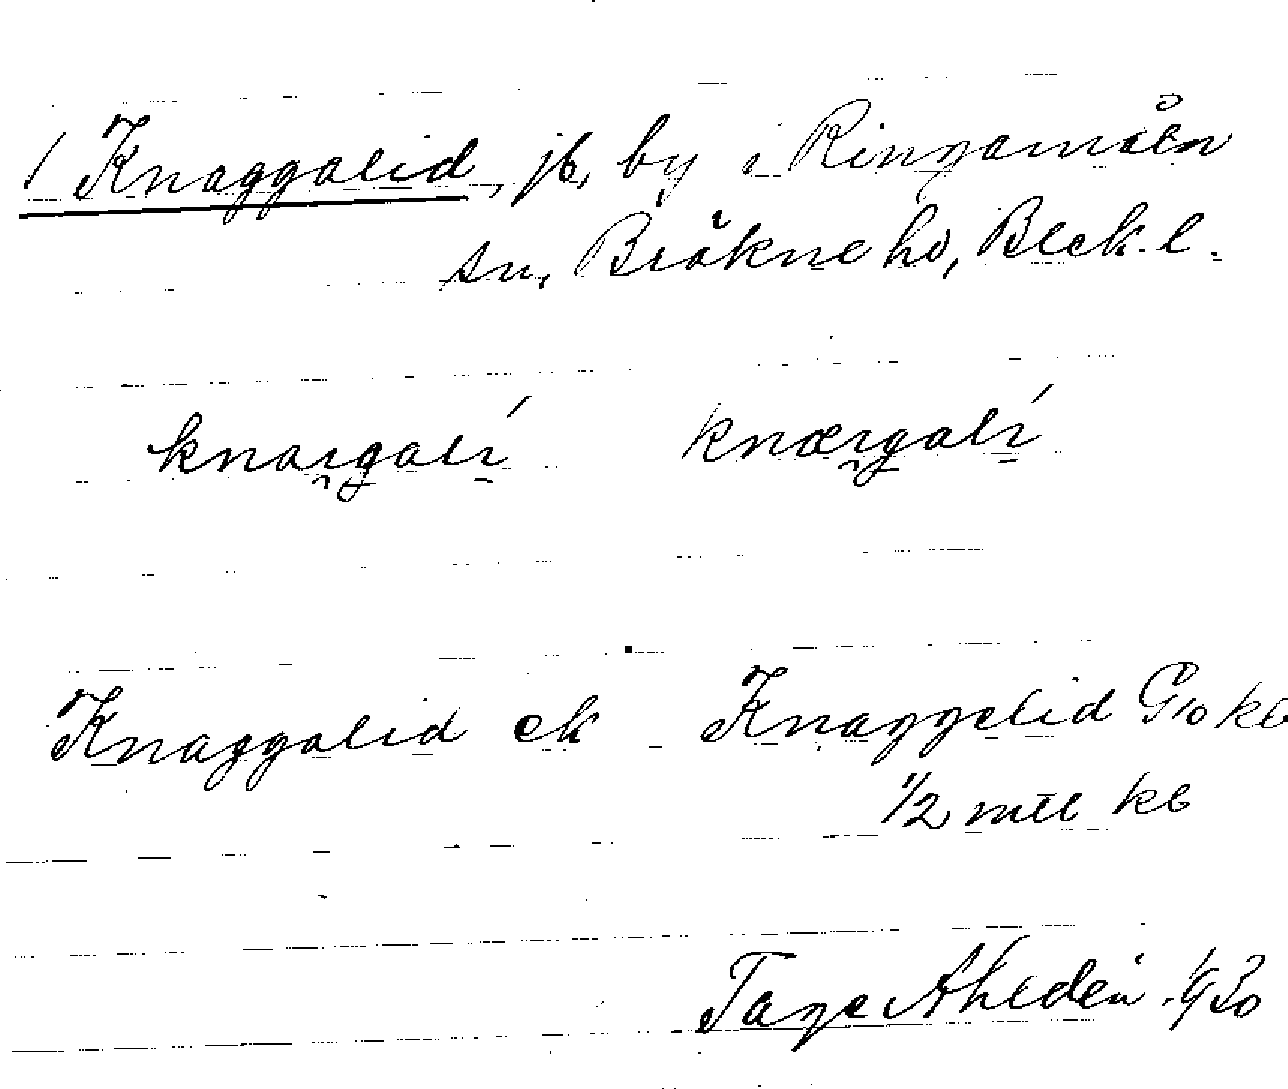 1 Knaggalid, jb, by i Ringamåla
sn, Bräkne hd, Blek. l.
knaggalí knæggalí
Knaggalid ek Knaggelid G10 kb
1/2 mtl kb
Tage Ahldén 1930